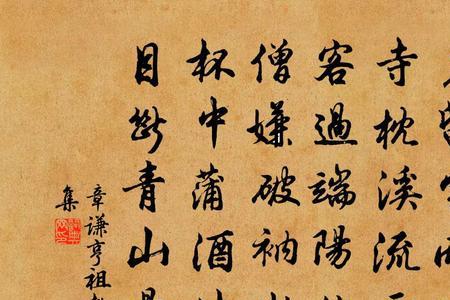 寺枕溪流
客過端陽
僧嫌破衲
杯中蒲酒
目斷青山
章謙亨祖
集